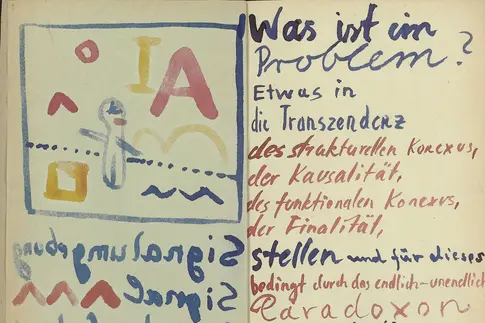 I A
Signalumgebung
Signal
Was ist ein
Problem?
Etwas in
die Transzendenz
des strukturellen Konexus,
der Kausalität,
des funktionalen Konexus,
der Finalität,
stellen und für dieses
bedingt durch das endlich-unendlich
Paradoxon